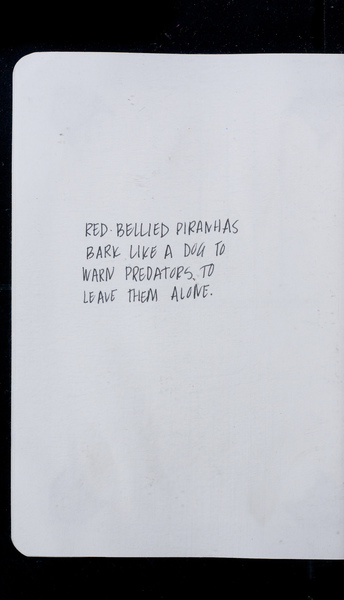 RED-BELLIED PIRANHAS
BARK LIKE A DOG TO
WARN PREDATORS TO
LEAVE THEM ALONE.